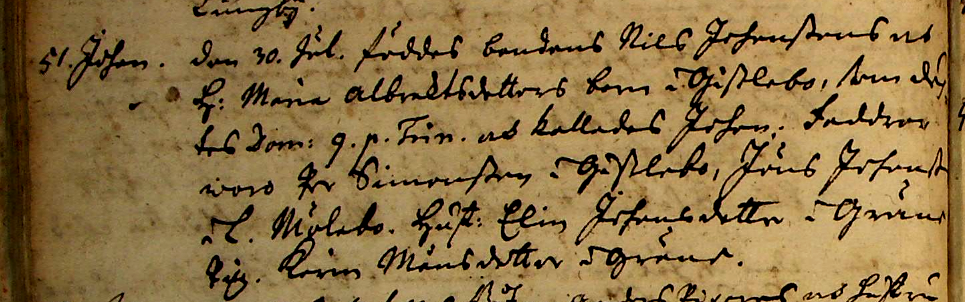 Liungby.
51. Johan. den 30. Jul. föddes bondens Nils Johanssons ok
H: Maria Albrektsdotters barn i Gislebo, som döp
tes Dom: 9. p. Trin. ok kallades Johan. Faddrar
woro Per Simonsson i Gislebo, Jöns Johanss
i L. Mölebo. Hust: Elin Johansdotter i Gräne
Pig. Karin Månsdotter i Gräne.